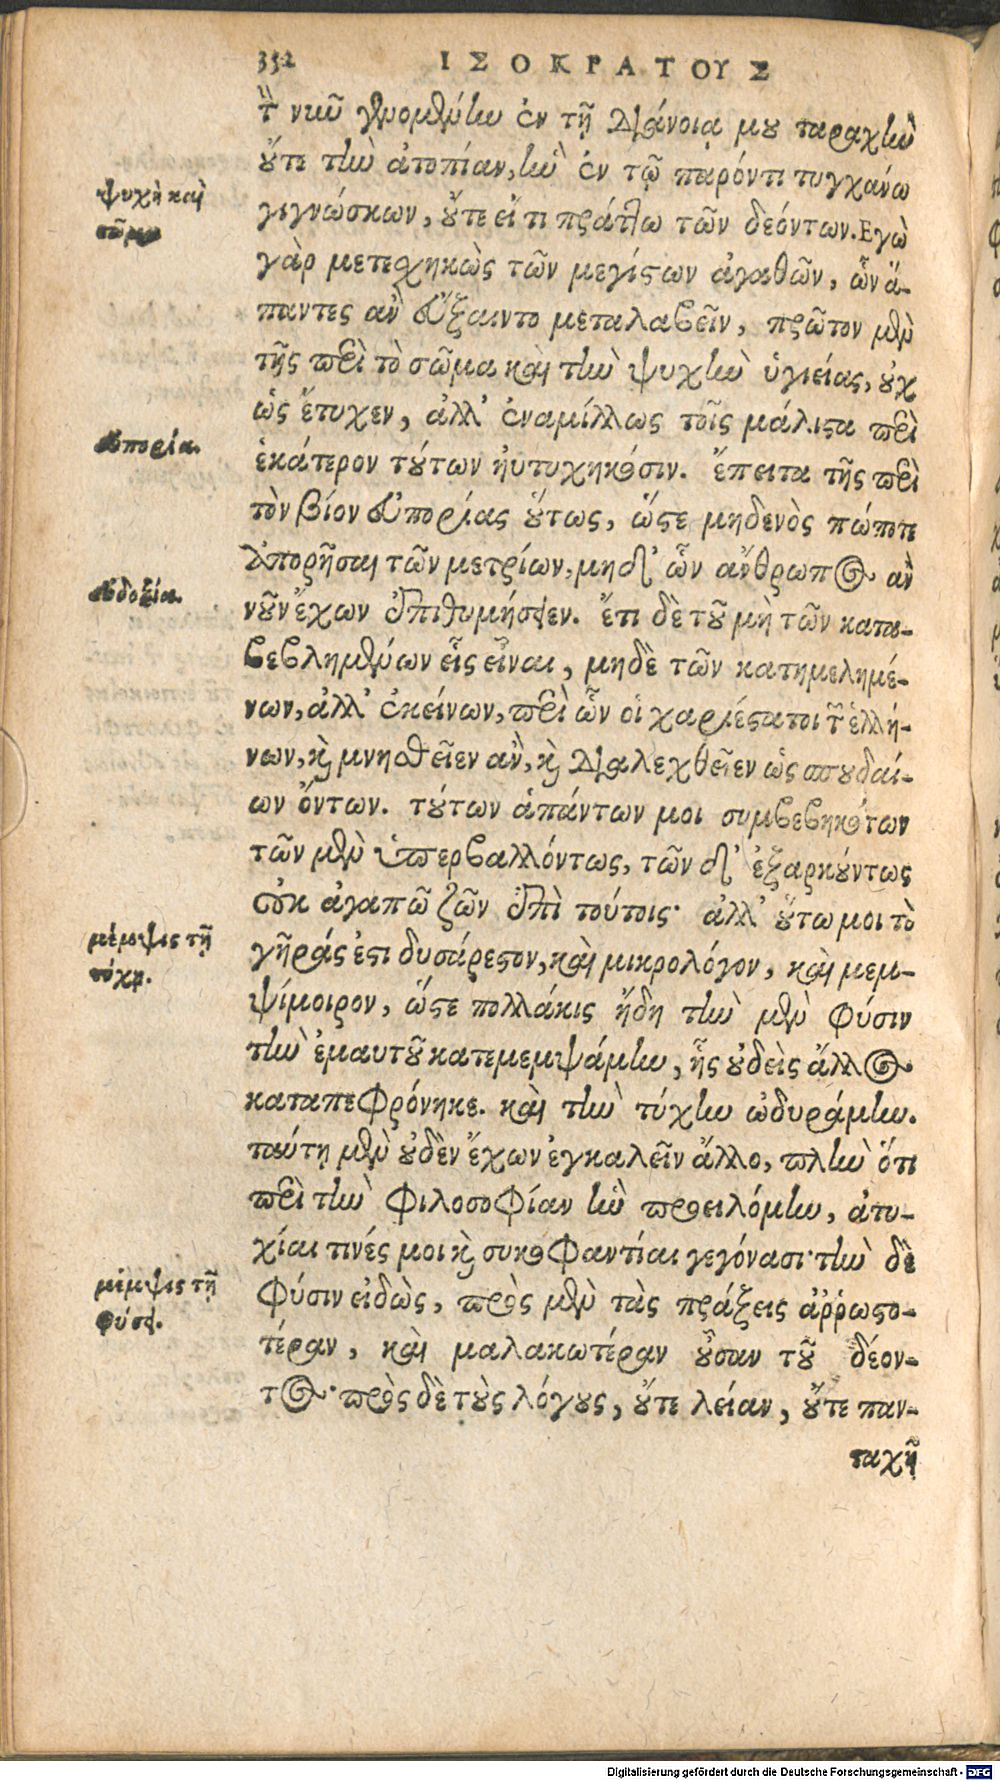 352 ΙΣΟΚΡΑΤΟΥΣ
τὴν νῦν γενομένην ἐν τῇ διάνοιᾳ μου ταραχὴν
οὔτε τὴν ἀτοπίαν, ἣν ἐν τῷ παρόντι τυγχάνω
ψυχὴ καὶ
σῶμα
γιγνώσκων, οὔτε εἴ τι πράττω τῶν δεόντων. Εγὼ
γὰρ μετεσχηκὼς τῶν μεγίστων ἀγαθῶν, ὧν ἅ-
παντες ἂν εὔξαιντο μεταλαβεῖν, πρῶτον μὲν
τῆς περὶ τὸ σῶμα καὶ τὴν ψυχὴν ὑγιείας, οὐχ
ὡς ἔτυχεν, ἀλλ' ἐναμίλλως τοῖς μάλιστα περὶ
εὐπορία.
ἑκάτερον τούτων ηὐτυχηκόσιν. ἔπειτα τῆς περὶ
τὸν βίον εὐπορίας οὕτως, ὥστε μηδενὸς πώποτε
ἀπορῆσαι τῶν μετρίων, μηδ' ὧν ἄνθρωπος ἂν
εὐδοξία.
νοῦν ἔχων ἐπιθυμήσειεν. ἔτι δὲ τοῦ μὴ τῶν κατα-
βεβλημένων εἷς εἶναι, μηδὲ τῶν κατημελημέ-
νων, ἀλλ' ἐκείνων, περὶ ὧν οἱ χαριέστατοι τῶν ἑλλή-
νων, καὶ μνησθεῖεν ἂν, καὶ διαλεχθεῖεν ὡς σπουδαί-
ων ὄντων. τούτων ἁπάντων μοι συμβεβηκότων
τῶν μὲν ὑπερβαλλόντως, τῶν δ' ἐξαρκούντως
οὐκ ἀγαπῶ ζῶν ἐπὶ τούτοις· ἀλλ' οὕτω μοι τὸ
μέμψις τῇ
τύχῃ.
γῆράς ἐστι δυσάρεστον, καὶ μικρολόγον, καὶ μεμ-
ψίμοιρον, ὥστε πολλάκις ἤδη τὴν μὲν φύσιν
τὴν ἐμαυτοῦ κατεμεμψάμην, ἧς οὐδεὶς ἄλλος
καταπεφρόνηκε. καὶ τὴν τύχην ὠδυράμην.
ταύτῃ μὲν οὐδὲν ἔχων ἐγκαλεῖν ἄλλο, πλὴν ὅτι
περὶ τὴν φιλοσοφίαν ἣν προειλόμην, ἀτυ-
χίαι τινές μοι καὶ συκοφαντίαι γεγόνασι· τὴν δὲ
μέμψις τῇ
φύσει.
φύσιν εἰδὼς, πρὸς μὲν τὰς πράξεις ἀῤῥωστο-
τέραν, καὶ μαλακωτέραν οὖσαν τοῦ δέον-
τος· πρὸς δὲ τοὺς λόγους, οὔτε λείαν, οὔτε παν-
ταχῇ
Digitalisierung gefördert durch die Deutsche Forschungsgemeinschaft - DFG